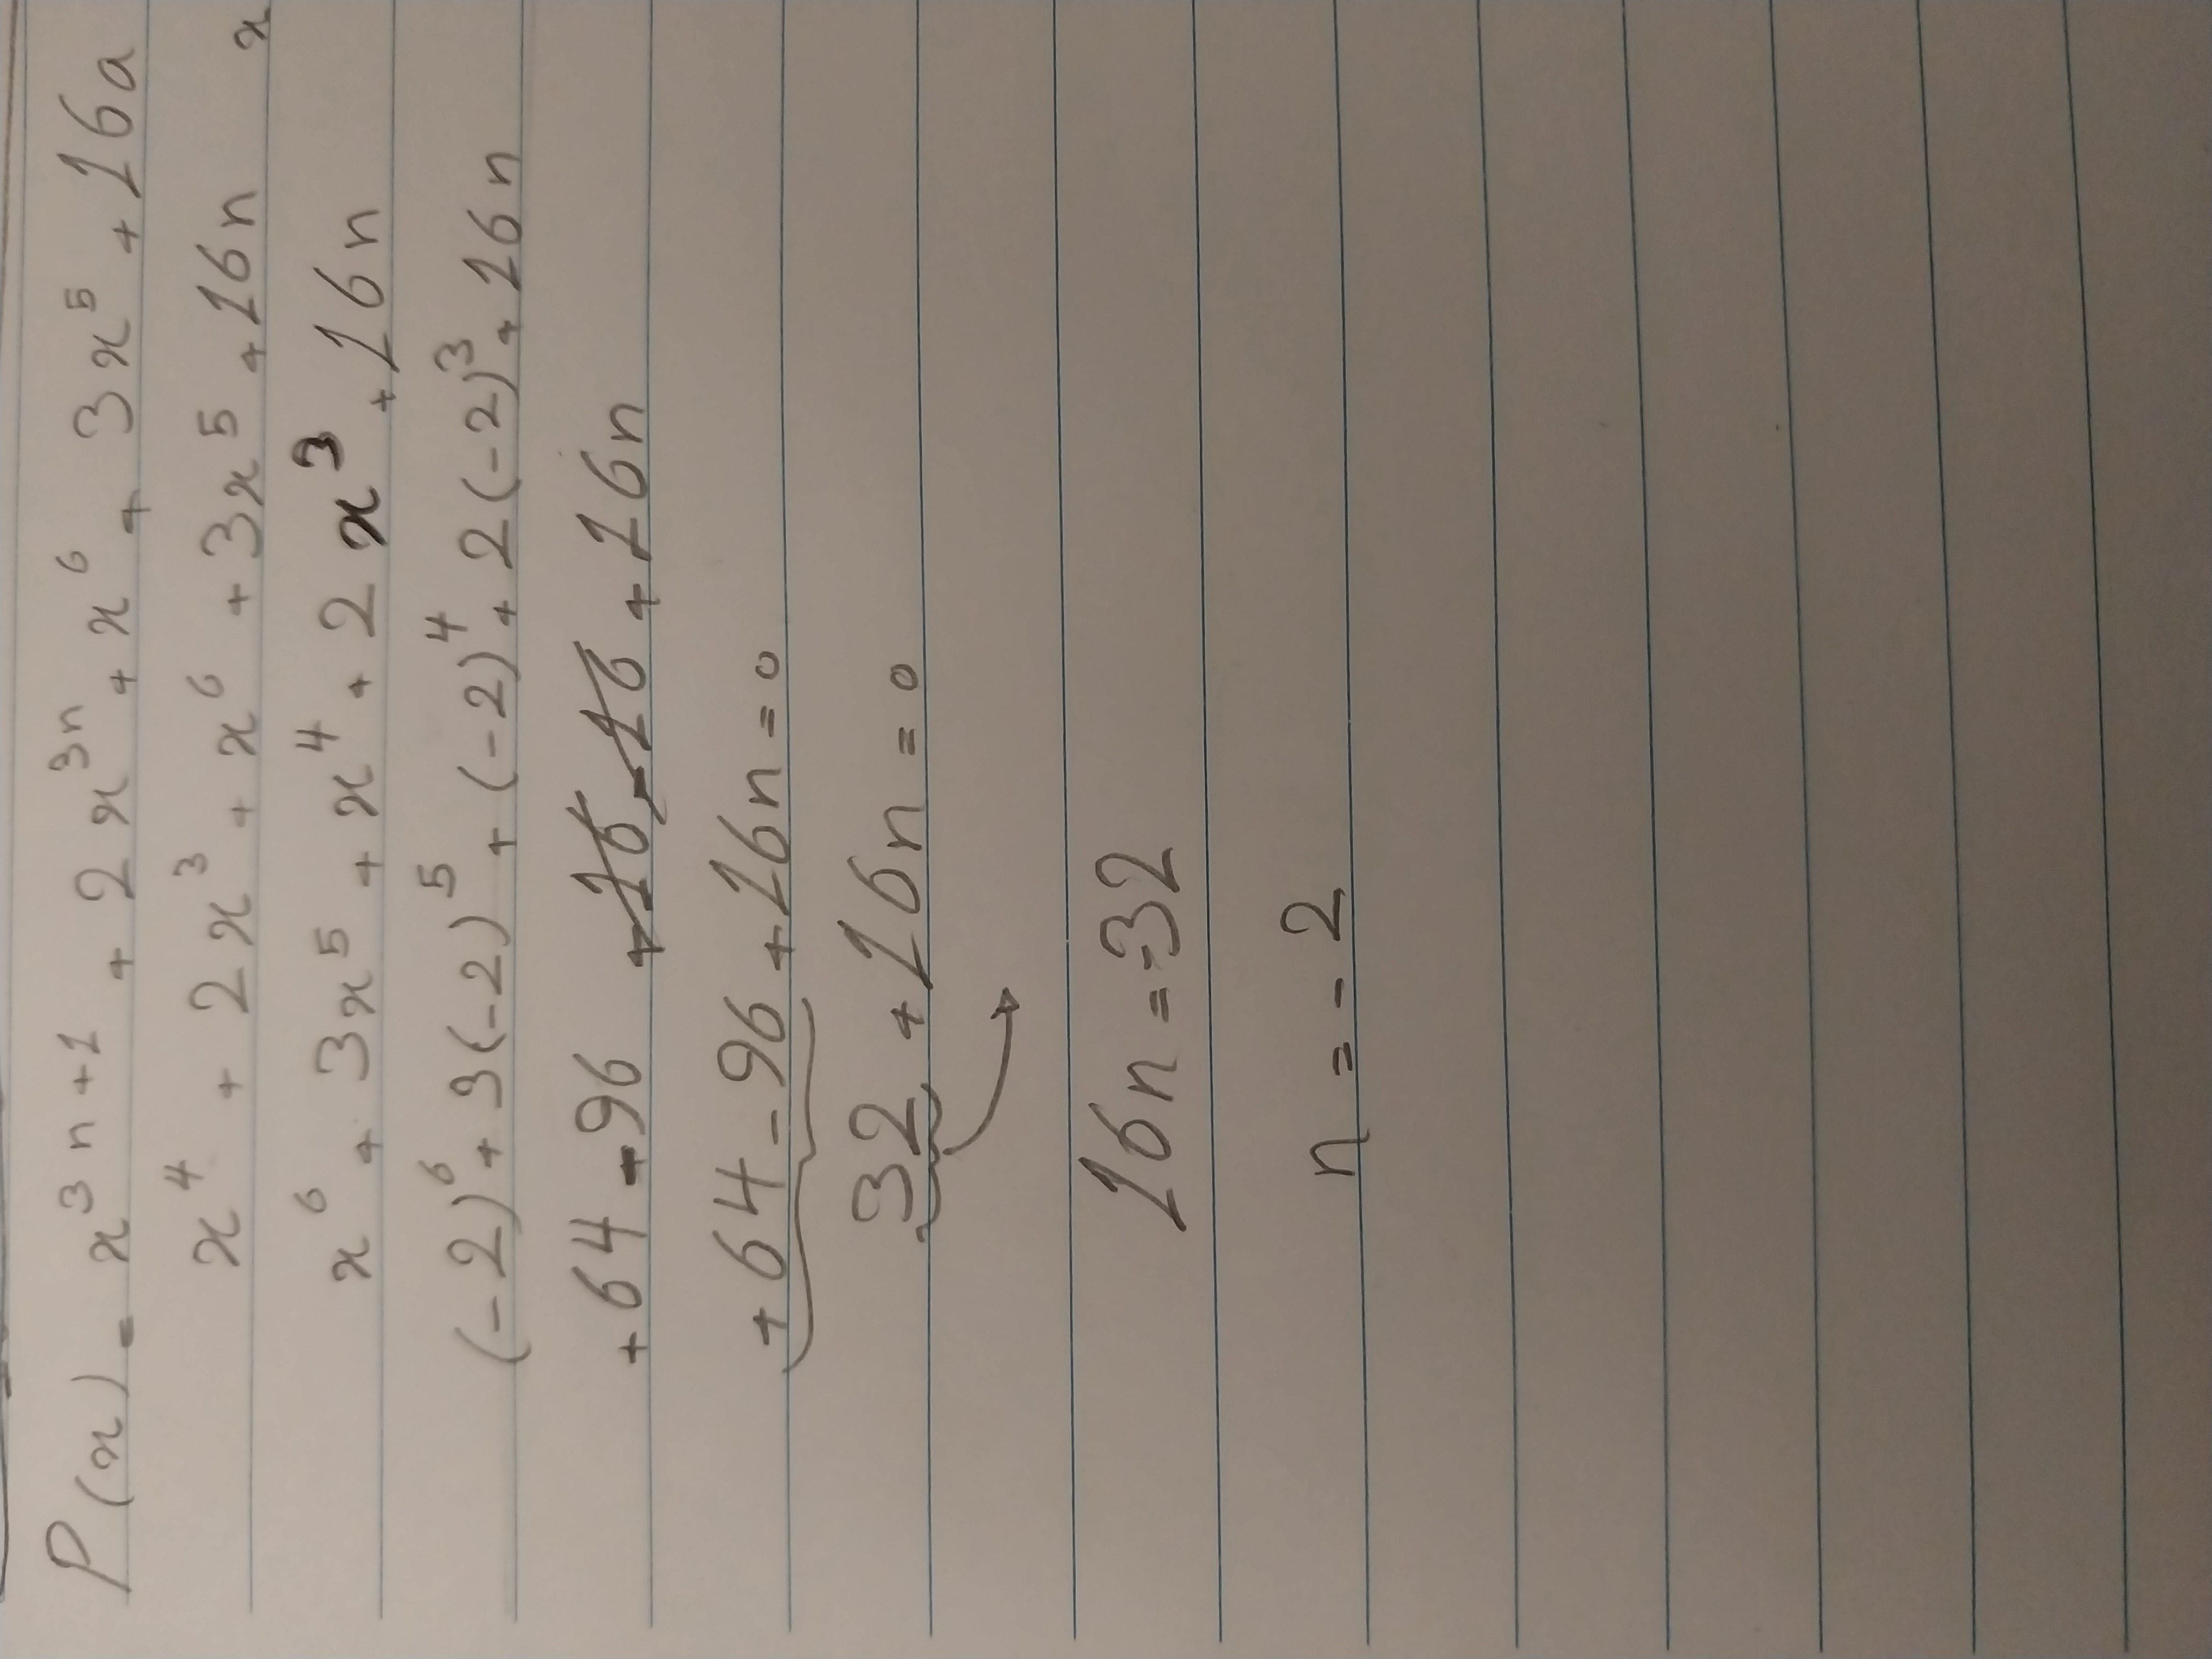 P(x) = x^{3n+1} + 2x^{3n} + x^6 + 3x^5 + 16a
x^4 + 2x^3 + x^6 + 3x^5 + 16n x
x^6 + 3x^5 + x^4 + 2x^3 + 16n
(-2)^6 + 3(-2)^5 + (-2)^4 + 2(-2)^3 + 16n
+64 - 96 + 16 - 16 + 16n
+64 - 96 + 16n = 0
32 + 16n = 0
16n = -32
n = -2